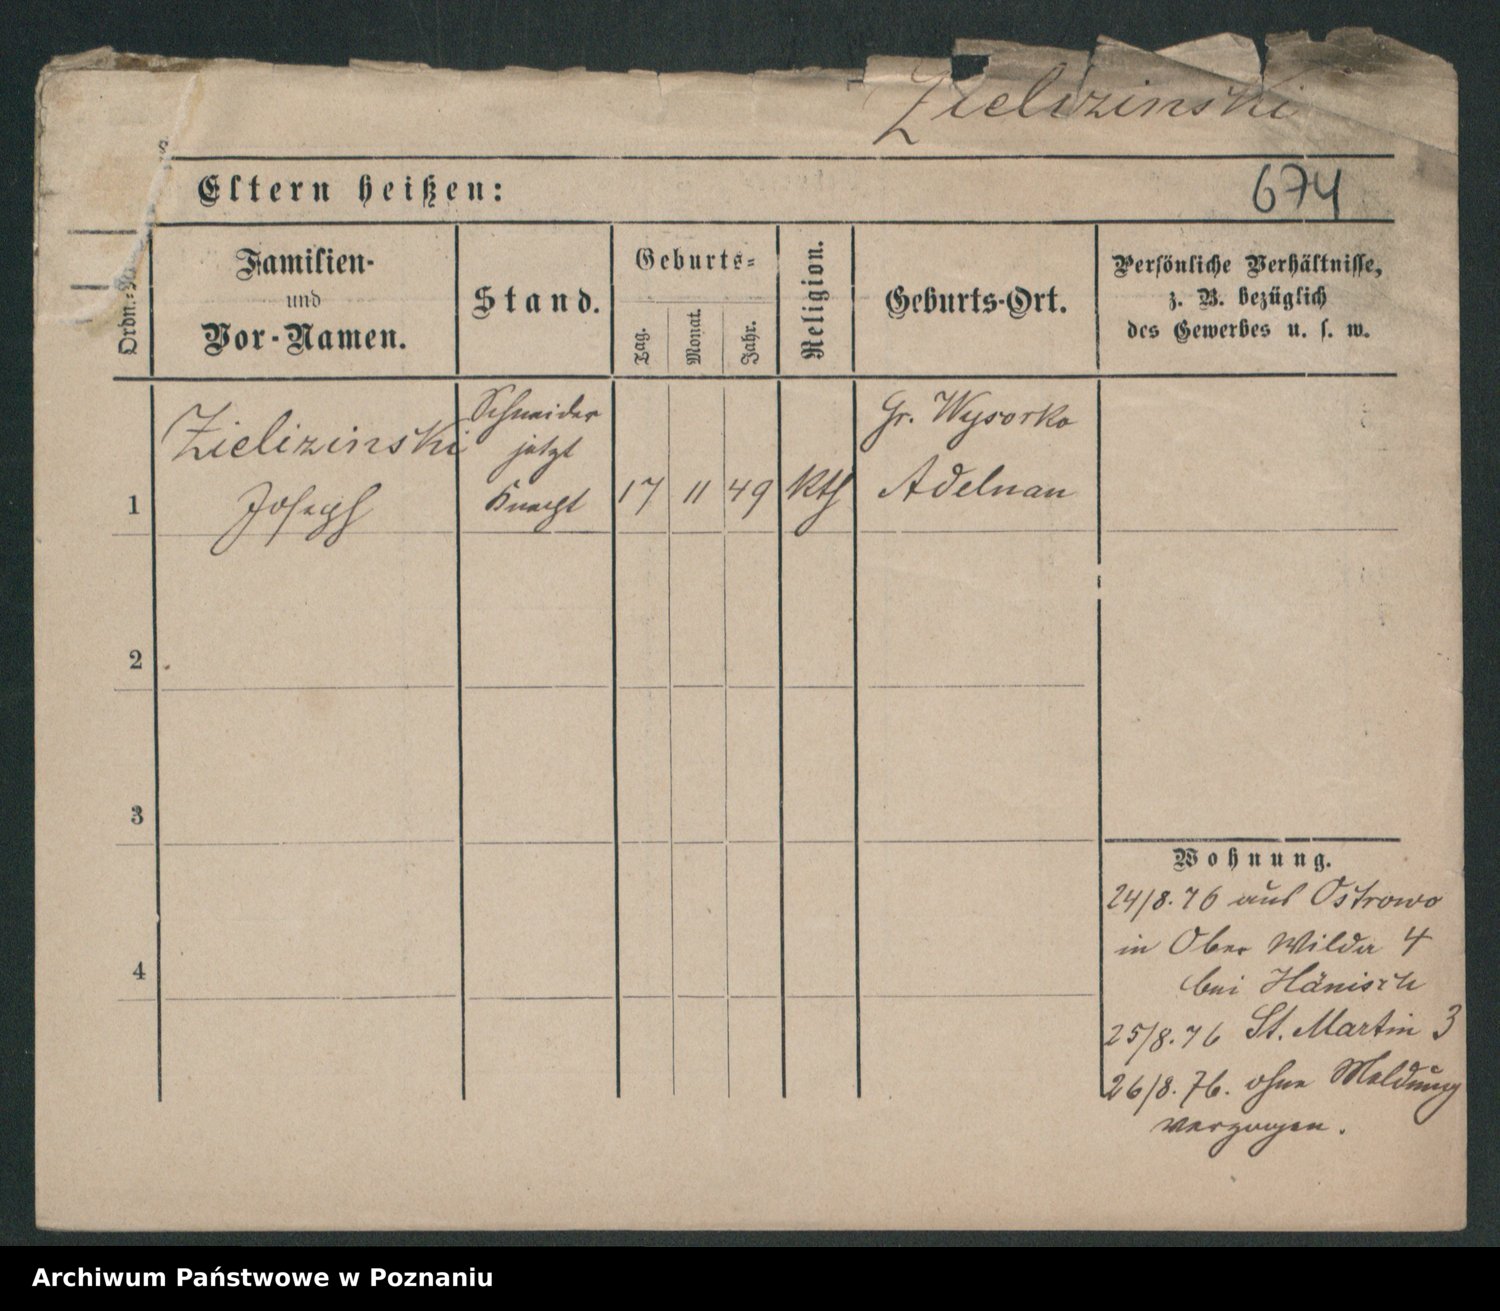 Zielizinski
Eltern heißen:
674
Ordn.=
Familien-
und
Vor-Namen.
Stand.
Geburts=
Tag.
Monat.
Jahr.
Religion.
Geburts-Ort.
Persönliche Verhältnisse,
z. B. bezüglich
des Gewerbes u. s. w.
1
Zielizinski
Joseph
Schneider
jetzt
Knecht
17
11
49
kth
Gr. Wysocko
Adelnau
2
3
4
Wohnung.
24/8. 76 aus Ostrowo
in Ober Wilda 4
bei Hänisch
25/8. 76 St. Martin 3
26/8. 76. ohne Meldung
verzogen.
Archiwum Państwowe w Poznaniu